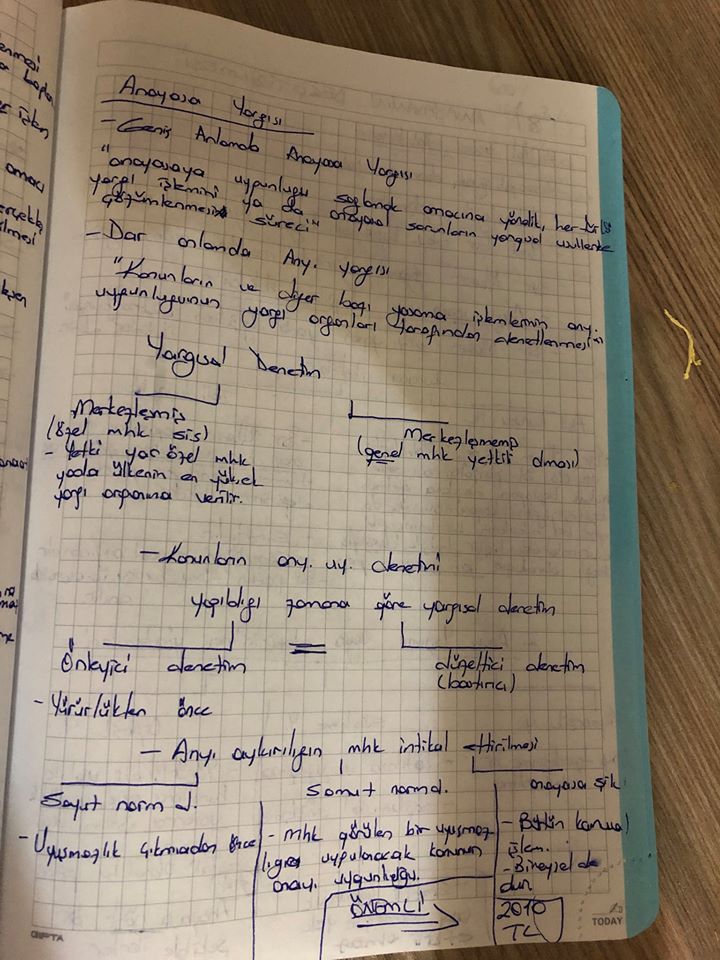 Anayasa Yargısı
- Geniş Anlamda Anayasa Yargısı
"anayasaya uygunluğu sağlamak amacına yönelik, her türlü
yargı işlemini ya da anayasal sorunların yargısal usullerle
çözümlenmesi süreci"
- Dar anlamda Any. yargısı
"Kanunların ve diğer bazı yasama işlemlerinin any.
uygunluğunun yargı organları tarafından denetlenmesi"
Yargısal Denetim
Merkezleşmiş
(özel mhk sis)
- Yetki ya özel mhk
yada ülkenin en yüksek
yargı organına verilir.
Merkezleşmemiş
(genel mhk yetkili olması)
- Kanunların any. uy. denetimi
yapıldığı zamana göre yargısal denetim
Önleyici denetim
- Yürürlükten önce
düzeltici denetim
(bastırıcı)
- Any. aykırılığın mhk intikal ettirilmesi
Soyut norm d.
- Uyuşmazlık çıkmadan önce
Somut norm d.
- mhk görülen bir uyuşmaz
lığa uygulanacak kanunun
anay. uygunluğu.
ÖNEMLİ
anayasa şik.
- Bütün kamusal
işlem.
- Bireysel de
dur
2010
TC
GIPTA
TODAY